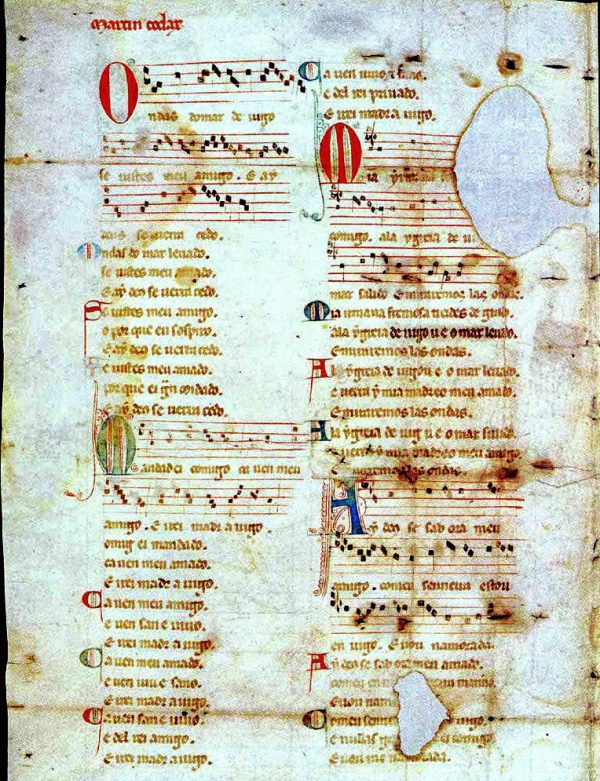 Martin codax
Ondas do mar de uigo
se uistes meu amigo. E ay
deus se uerra cedo.
Ondas do mar leuado.
se uistes meu amado.
E ay deo se uerra cedo.
Se uistes meu amigo.
o por que eu sospiro.
E ay deo se uerra cedo.
Se uistes meu amado.
por que ei gn coidado.
E ay deo se uerra cedo.
Mandad ei comigo ca uen meu
amigo. E irei madr a uigo.
comig ei mandado.
ca uen meu amado.
E irei madr a uigo.
Ca uen meu amigo.
e uen san e uiuo.
E irei madr a uigo.
Ca uen meu amado.
e uen uiu e sano.
E irei madr a uigo.
Ca uen san e uiuo.
e del rei amigo.
E irei madr a uigo.
Ca uen uiuo e sano.
e del rei priuado.
E irei madr a uigo.
Mia yrmana
comigo. ala ygreia de u
mar salido E miraremos las ondas.
Mia irmana fremosa treides de grado.
ala ygreia de uigo u e o mar leuado.
E miraremos las ondas.
A la ygreia de uigo u e o mar leuado.
e uerra y mia madre o meu amado.
E miraremos las ondas.
A la ygreia de uig u e o mar salido.
e uerra y mia madre o meu amigo.
E miraremos las ondas.
Ay deo se sab ora meu
amigo. com eu senneira estou
en uigo. E uou namorada.
Ay deo se sab ora meu amado.
com eu en manno.
E uou nam
Com eu senn uigo.
e nullas g ei comigo.
E uou namorada.